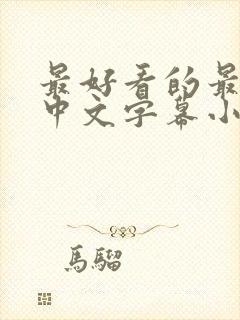 最好看的最
中文字幕小
馬騮